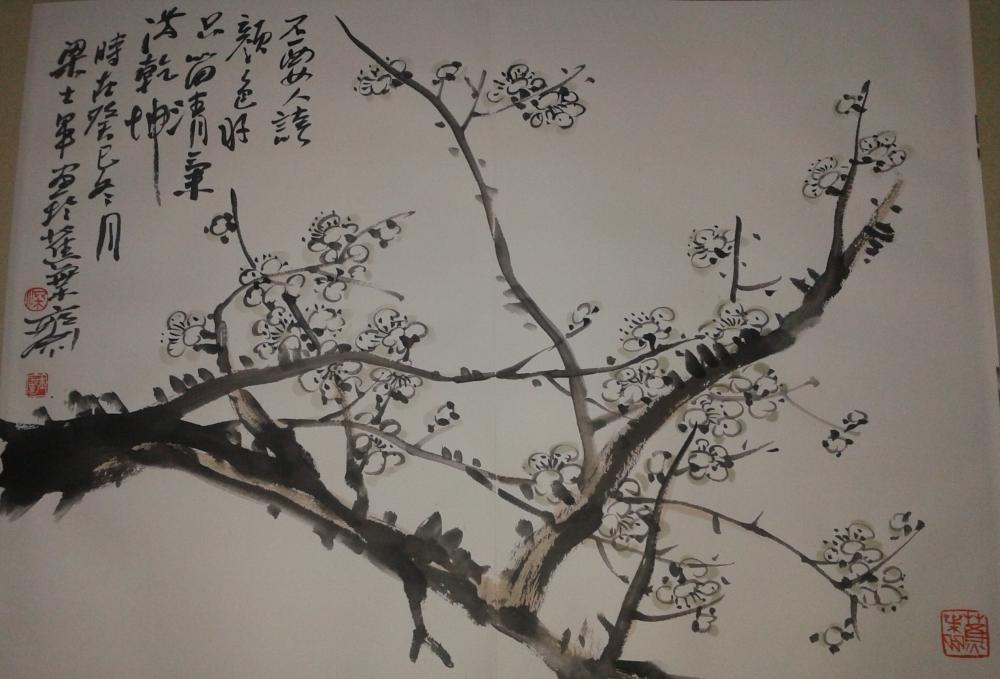 不要人誇
顔色好
只留清氣
滿乾坤
時在癸巳冬月
梁士軍畫於蕉葉齋